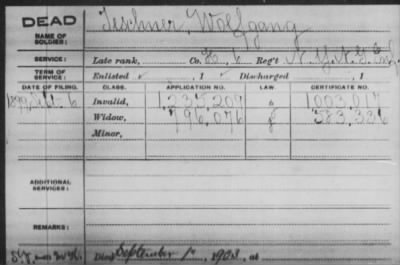 DEAD
NAME OF SOLDIER:
Teschner, Wolfgang
SERVICE:
Late rank, Co. E, 6 Reg't N.Y.H.
TERM OF SERVICE:
Enlisted ✓ , 1 ✓ Discharged , 1
DATE OF FILING. CLASS. APPLICATION NO. LAW. CERTIFICATE NO.
1899 Sept-6 Invalid, 1,235,209 1,003,017
Widow, 796,076 583,336
Minor,
ADDITIONAL SERVICES:
REMARKS:
Died September 1, 1903, at